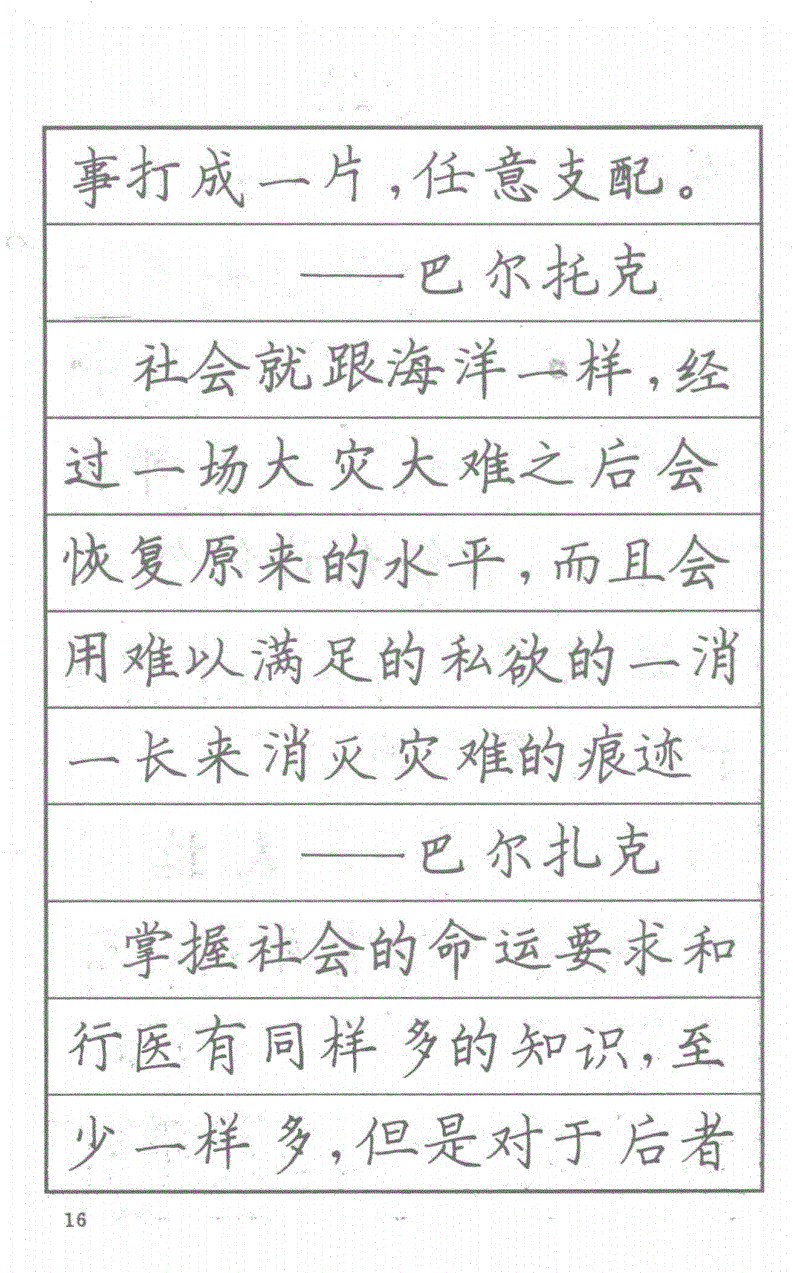 事打成一片，任意支配。
——巴尔托克
社会就跟海洋一样，经
过一场大灾大难之后会
恢复原来的水平，而且会
用难以满足的私欲的一消
一长来消灭灾难的痕迹
——巴尔扎克
掌握社会的命运要求和
行医有同样多的知识，至
少一样多，但是对于后者
16